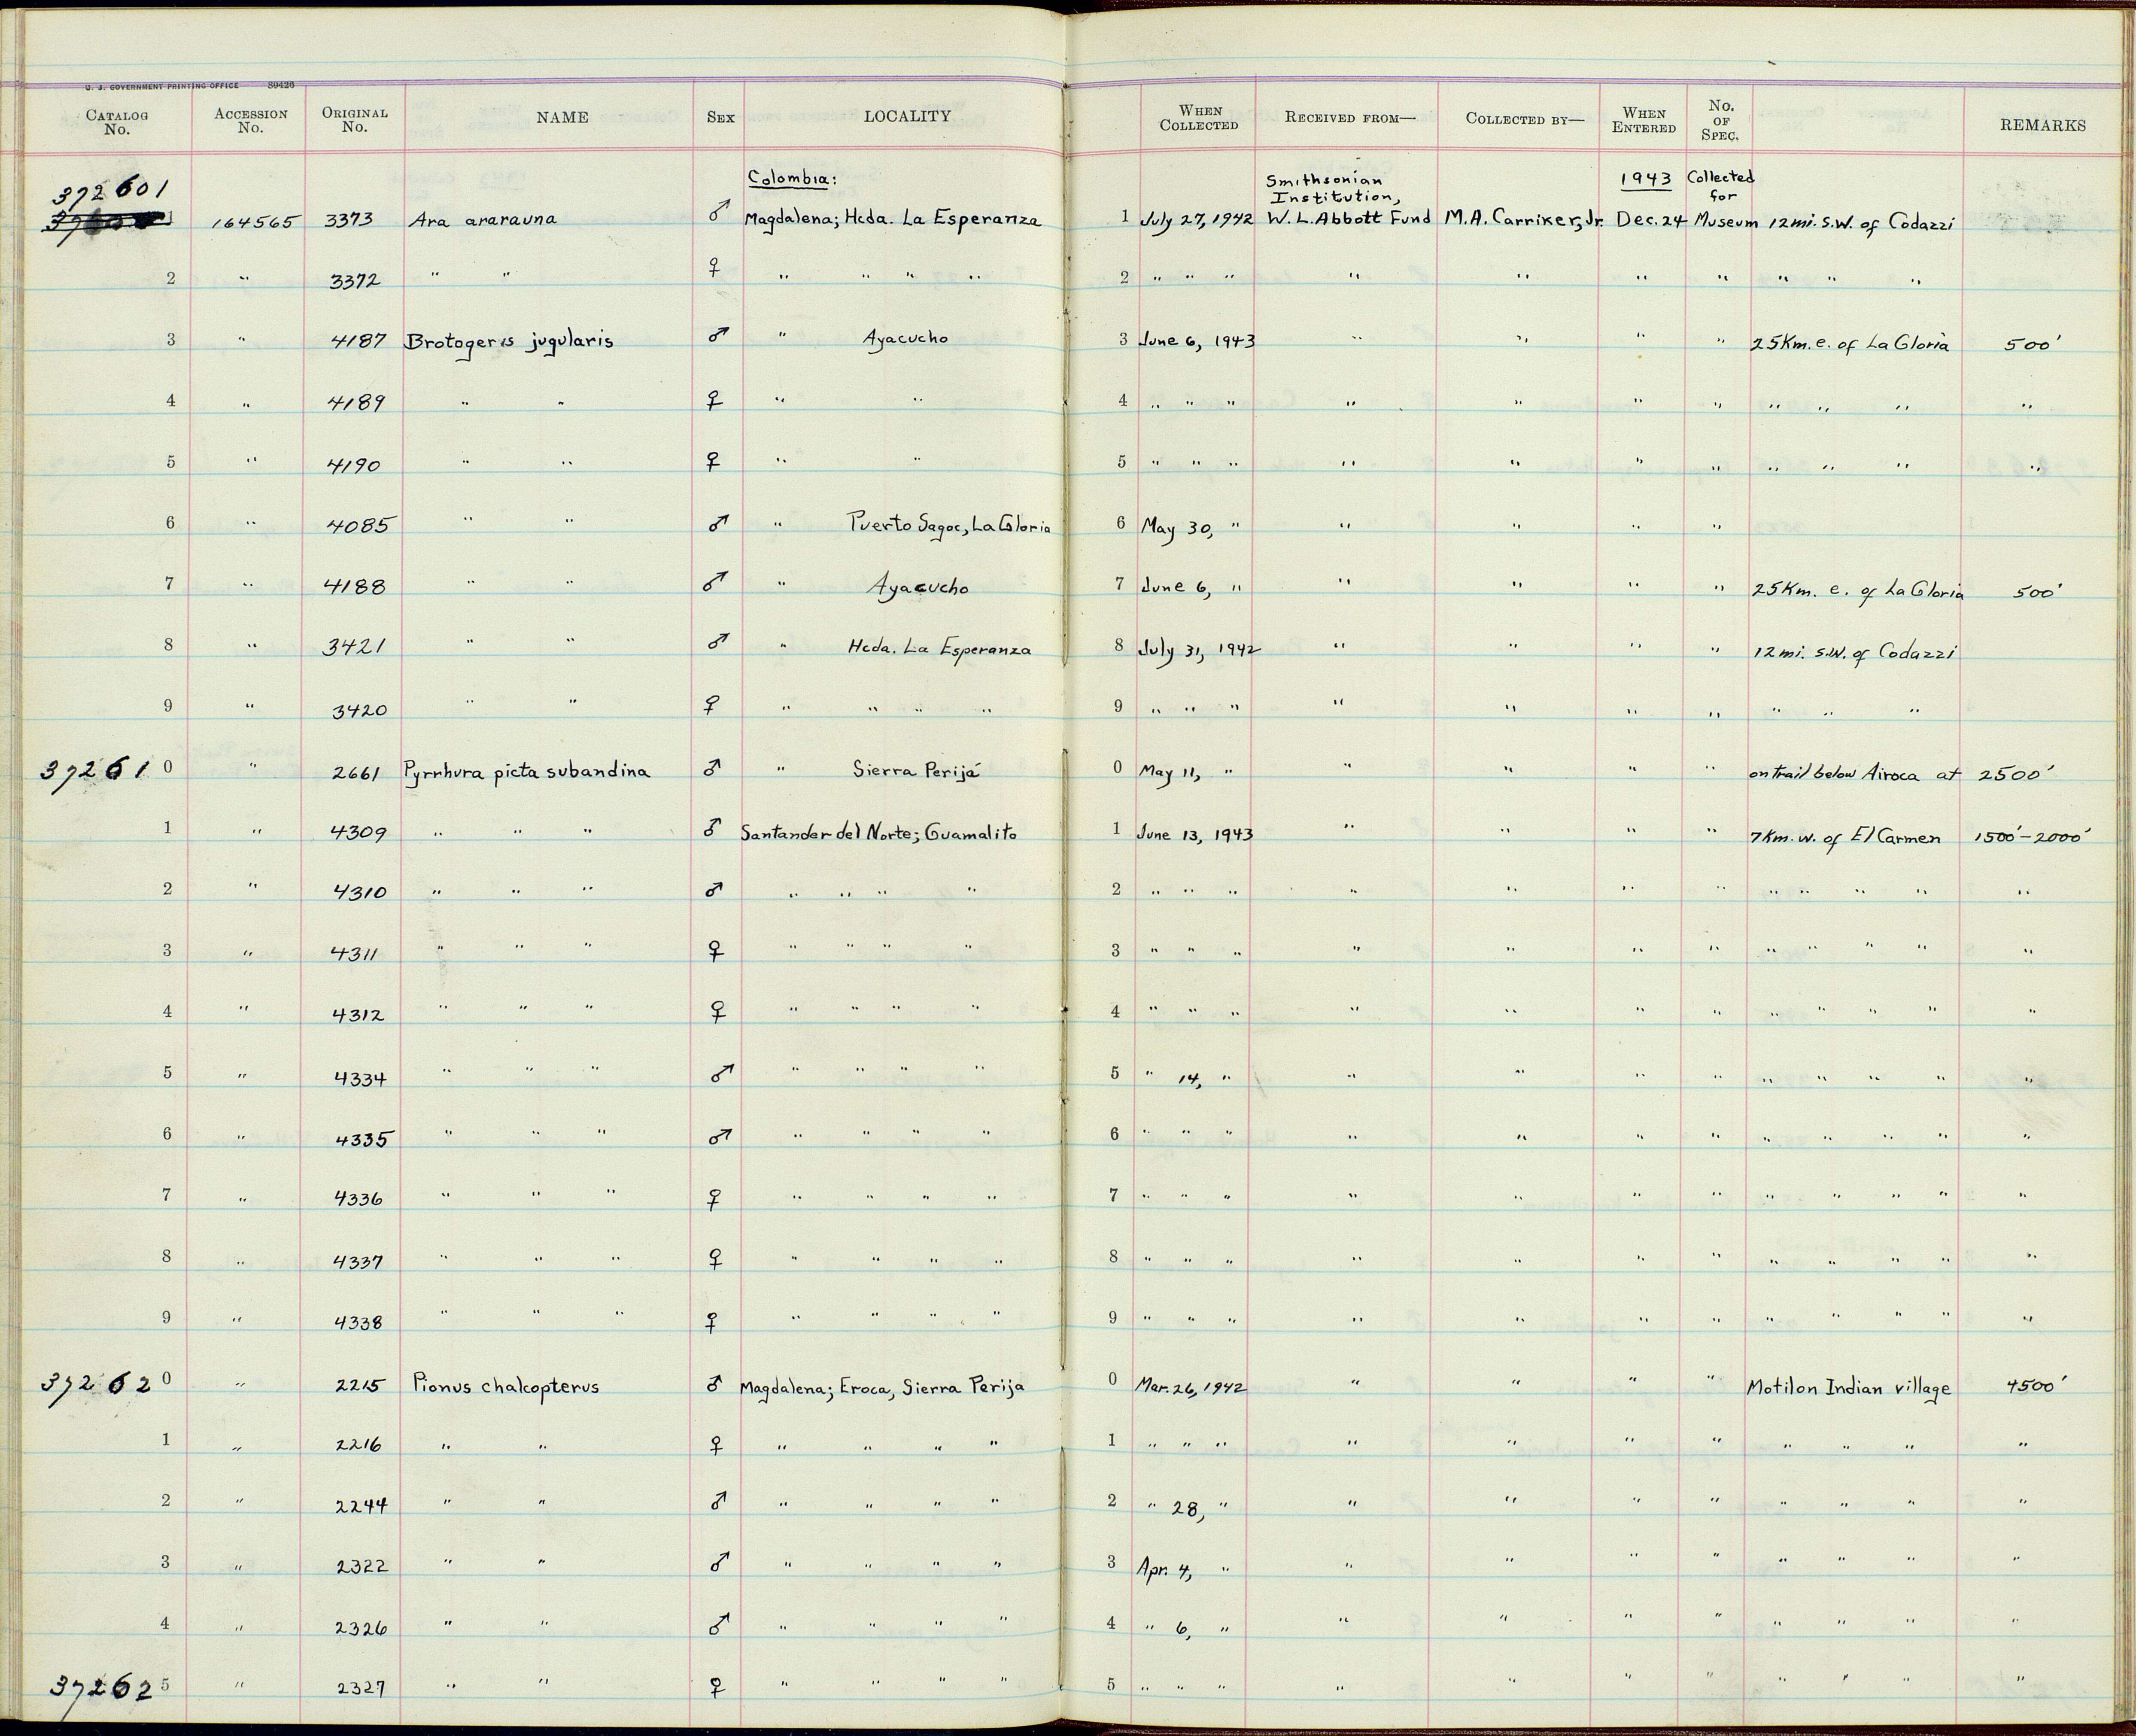 U. S. GOVERNMENT PRINTING OFFICE 89426
CATALOG No. ACCESSION No. ORIGINAL No. NAME SEX LOCALITY WHEN COLLECTED RECEIVED FROM— COLLECTED BY— WHEN ENTERED No. OF SPEC. REMARKS
372601 Colombia: Smithsonian Institution, 1943 Collected for
164565 3373 Ara ararauna ♂ Magdalena; Hcda. La Esperanza 1 July 27, 1942 W. L. Abbott Fund M. A. Carriker, Jr. Dec. 24 Museum 12 mi. s.w. of Codazzi
2 " 3372 " " ♀ " " " " 2 " " " " " " " " " "
3 " 4187 Brotogeris jugularis ♂ " Ayacucho 3 June 6, 1943 " " " " 25 Km. e. of La Gloria 500'
4 " 4189 " " ♀ " " 4 " " " " " " " " " " "
5 " 4190 " " ♀ " " 5 " " " " " " " " " " "
6 " 4085 " " ♂ " Puerto Sagoc, La Gloria 6 May 30, " " " " "
7 " 4188 " " ♂ " Ayacucho 7 June 6, " " " " " 25 Km. e. of La Gloria 500'
8 " 3421 " " ♂ " Hcda. La Esperanza 8 July 31, 1942 " " " " 12 mi. s.w. of Codazzi
9 " 3420 " " ♀ " " " " 9 " " " " " " " " " "
372610 " 2661 Pyrrhura picta subandina ♂ " Sierra Perijá 0 May 11, " " " " " on trail below Airoca at 2500'
1 " 4309 " " " ♂ Santander del Norte; Guamalito 1 June 13, 1943 " " " " 7 Km. w. of El Carmen 1500'-2000'
2 " 4310 " " " ♂ " " " " 2 " " " " " " " " " " " "
3 " 4311 " " " ♀ " " " " 3 " " " " " " " " " " " "
4 " 4312 " " " ♀ " " " " 4 " " " " " " " " " " " "
5 " 4334 " " " ♂ " " " " 5 " 14, " " " " " " " " " "
6 " 4335 " " " ♂ " " " " 6 " " " " " " " " " " " "
7 " 4336 " " " ♀ " " " " 7 " " " " " " " " " " " "
8 " 4337 " " " ♀ " " " " 8 " " " " " " " " " " " "
9 " 4338 " " " ♀ " " " " 9 " " " " " " " " " " " "
372620 " 2215 Pionus chalcopterus ♂ Magdalena; Eroca, Sierra Perija 0 Mar. 26, 1942 " " " " Motilon Indian village 4500'
1 " 2216 " " ♀ " " " " 1 " " " " " " " " " " "
2 " 2244 " " ♂ " " " " 2 " 28, " " " " " " " " "
3 " 2322 " " ♂ " " " " 3 Apr. 4, " " " " " " " " "
4 " 2326 " " ♂ " " " " 4 " 6, " " " " " " " " "
372625 " 2327 " " ♀ " " " " 5 " " " " " " " " " " "